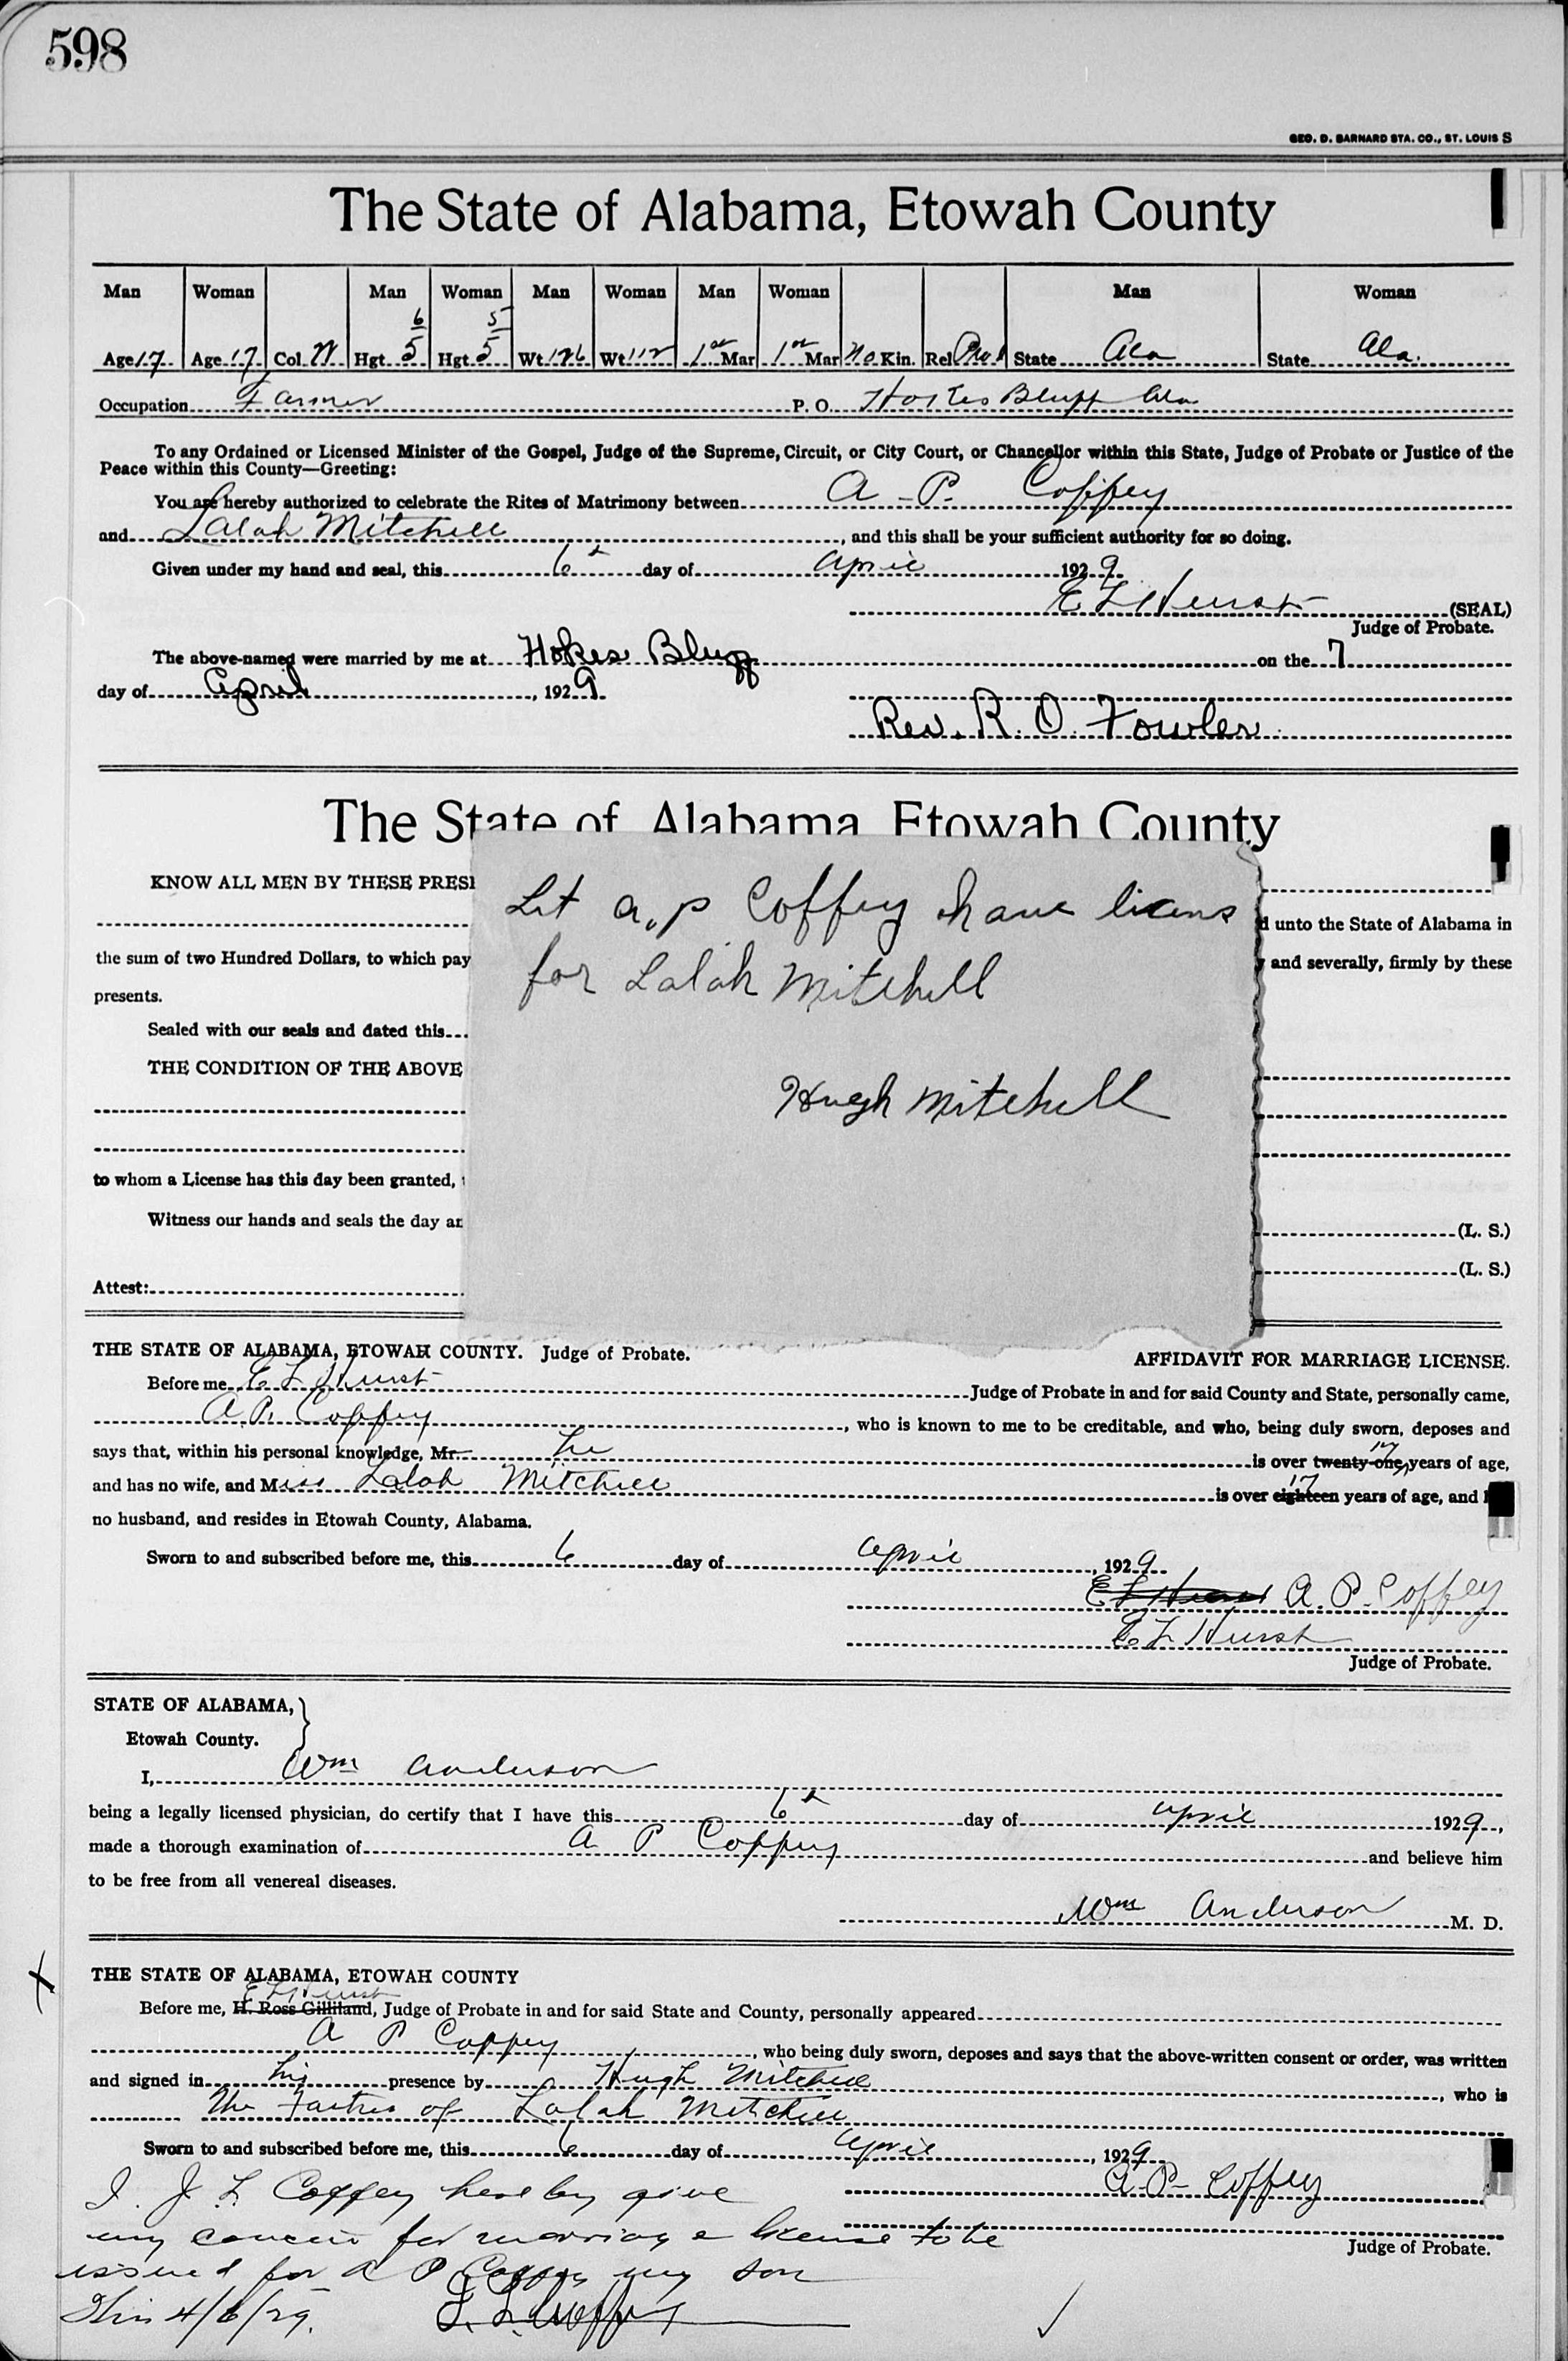 598
GEO. D. BARNARD STA. CO., ST. LOUIS S
The State of Alabama, Etowah County
Man Woman Man Woman Man Woman Man Woman Man Woman
6 5
Age 17 Age 17 Col. W Hgt. 5 Hgt. 5 Wt 126 Wt 112 1st Mar 1st Mar No Kin. Rel Prot State Ala State Ala.
Occupation Farmer P. O. Hokes Bluff Ala
To any Ordained or Licensed Minister of the Gospel, Judge of the Supreme, Circuit, or City Court, or Chancellor within this State, Judge of Probate or Justice of the
Peace within this County—Greeting:
You are hereby authorized to celebrate the Rites of Matrimony between A - P. Coffey
and Lalah Mitchell, and this shall be your sufficient authority for so doing.
Given under my hand and seal, this 6th day of April 1929.
E L Hurst (SEAL)
Judge of Probate.
The above-named were married by me at Hokes Bluff on the 7
day of April, 1929.
Rev. R. O. Fowler
The State of Alabama Etowah County
KNOW ALL MEN BY THESE PRESE
d unto the State of Alabama in
the sum of two Hundred Dollars, to which pay
y and severally, firmly by these
presents.
Sealed with our seals and dated this
THE CONDITION OF THE ABOVE
to whom a License has this day been granted,
Witness our hands and seals the day an
(L. S.)
(L. S.)
Attest:
Let a.p Coffey have licens
for Lalah Mitchell
Hugh Mitchell
THE STATE OF ALABAMA, ETOWAH COUNTY. Judge of Probate.
AFFIDAVIT FOR MARRIAGE LICENSE.
Before me E L Hurst Judge of Probate in and for said County and State, personally came,
A. P. Coffey, who is known to me to be creditable, and who, being duly sworn, deposes and
says that, within his personal knowledge, Mr. he is over twenty-one 17 years of age,
and has no wife, and Miss Lalah Mitchell is over eighteen 17 years of age, and
no husband, and resides in Etowah County, Alabama.
Sworn to and subscribed before me, this 6 day of April, 1929.
E L Hurst A. P. Coffey
E L Hurst
Judge of Probate.
STATE OF ALABAMA,
Etowah County.
I, Wm Anderson
being a legally licensed physician, do certify that I have this 6th day of April 1929,
made a thorough examination of A P Coffey and believe him
to be free from all venereal diseases.
Wm Anderson M. D.
X
THE STATE OF ALABAMA, ETOWAH COUNTY
E L Hurst
Before me, H. Ross Gilliland, Judge of Probate in and for said State and County, personally appeared
A P Coffey, who being duly sworn, deposes and says that the above-written consent or order, was written
and signed in his presence by Hugh Mitchell, who is
the Father of Lalah Mitchell
Sworn to and subscribed before me, this 6 day of April, 1929.
A. P. Coffey
Judge of Probate.
I. J. L. Coffey hereby give
my concent for marriage license to be
issued for A P Coffey my son
This 4/6/29.